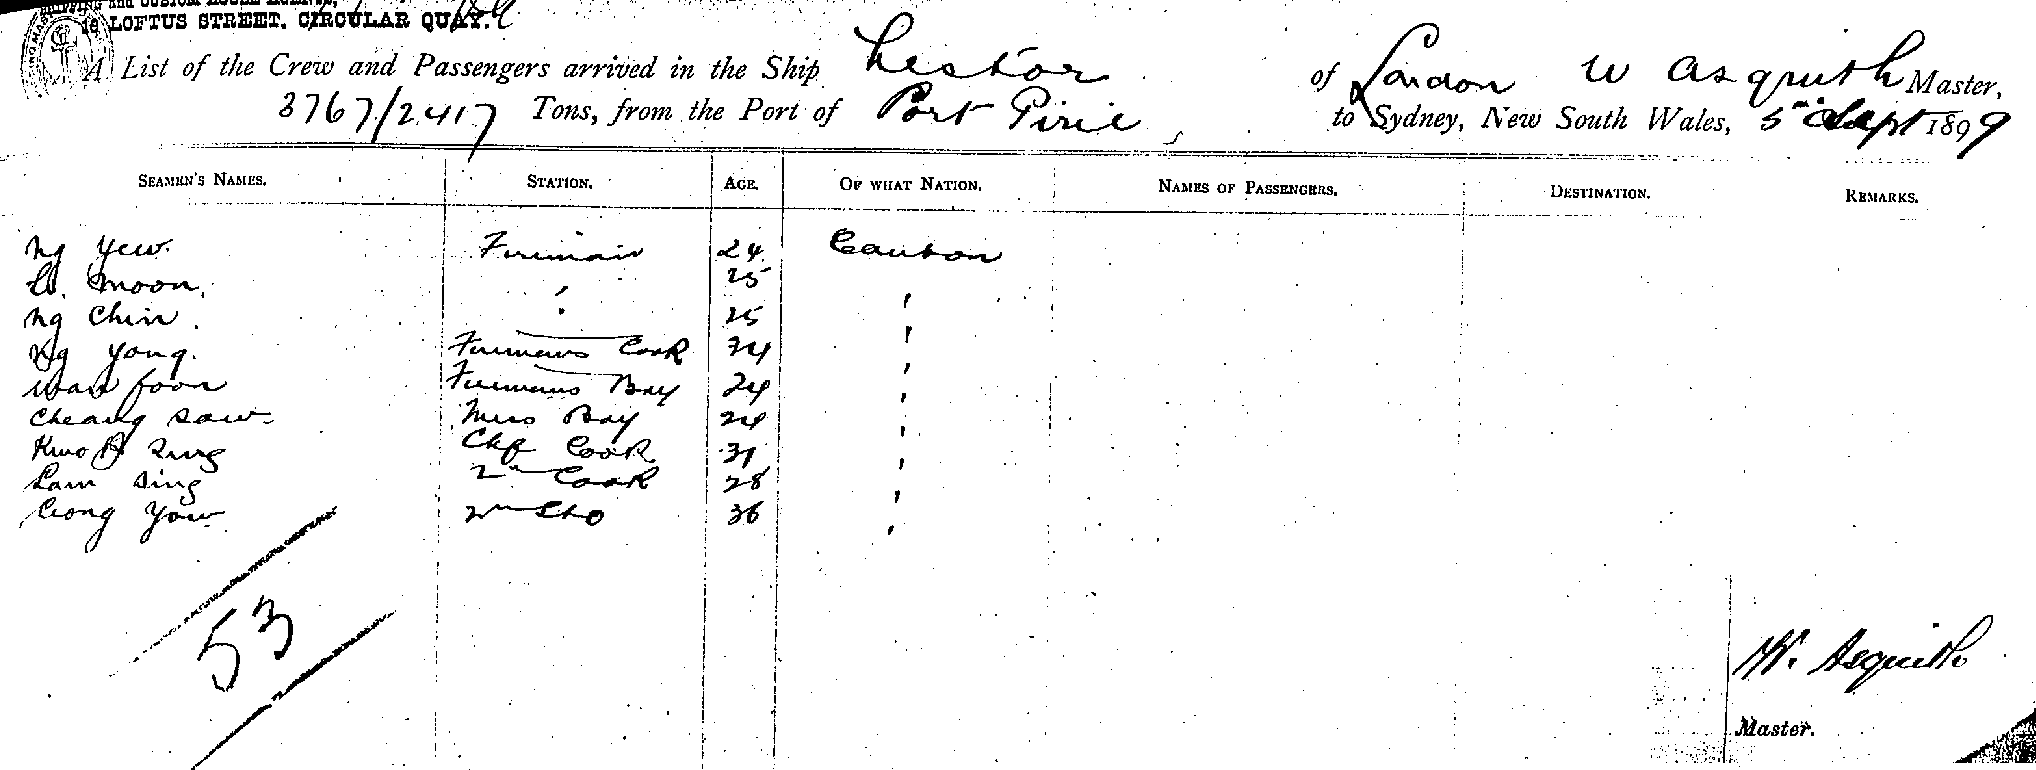 SHIPPING and CUSTOM HOUSE AGENTS,
18 LOFTUS STREET, CIRCULAR QUAY.
A List of the Crew and Passengers arrived in the Ship Nestor of London W Asquith Master,
3767/2417 Tons, from the Port of Port Pirie, to Sydney, New South Wales, 5th Sept 1899
SEAMEN'S NAMES. STATION. AGE. OF WHAT NATION. NAMES OF PASSENGERS. DESTINATION. REMARKS.
Ng Yew. Fireman 24 Canton
Moon. " 25 "
Ng Chin. " 25 "
Ng Yong. Firemans Cook 34 "
Wan Foon Firemans Boy 24 "
Cheang Saw Mess Boy 24 "
Sung Chf Cook 31 "
Lam Sing 2nd Cook 28 "
Yow 2nd 36 "
53
W. Asquith
Master.